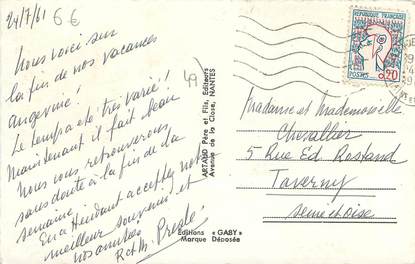 24/7/61
6 €
Nous voici sur
la fin de nos vacances
angevine !
Le temps a été très varié !
Maintenant il fait beau
Nous vous retrouverons
sans doute à la fin de la
semaine.
En attendant acceptez nos
meilleurs souvenirs et
nos amitiés
49
ARTAUD Père et Fils, Editeurs
Avenue de la Close, NANTES
Editions « GABY »
Marque Déposée
REPUBLIQUE FRANÇAISE
POSTES 0,20
Madame et Mademoiselle
Chevallier
5 Rue Ed. Rostand
Taverny
Seine et Oise